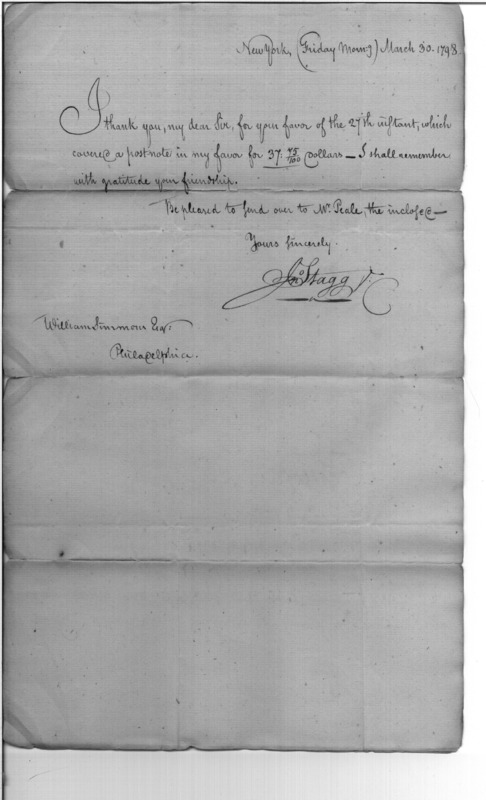 New York, (Friday Morng) March 30. 1798.
I thank you, my dear Sir, for your favor of the 27th instant, which
covered a post note in my favor for 37. 75/100 dollars — I shall remember
with gratitude your friendship.
Be pleased to send over to Mr. Peale, the inclosed —
Yours sincerely.
Jno Stagg Jr.
William Simmons Esqr.
Philadelphia.